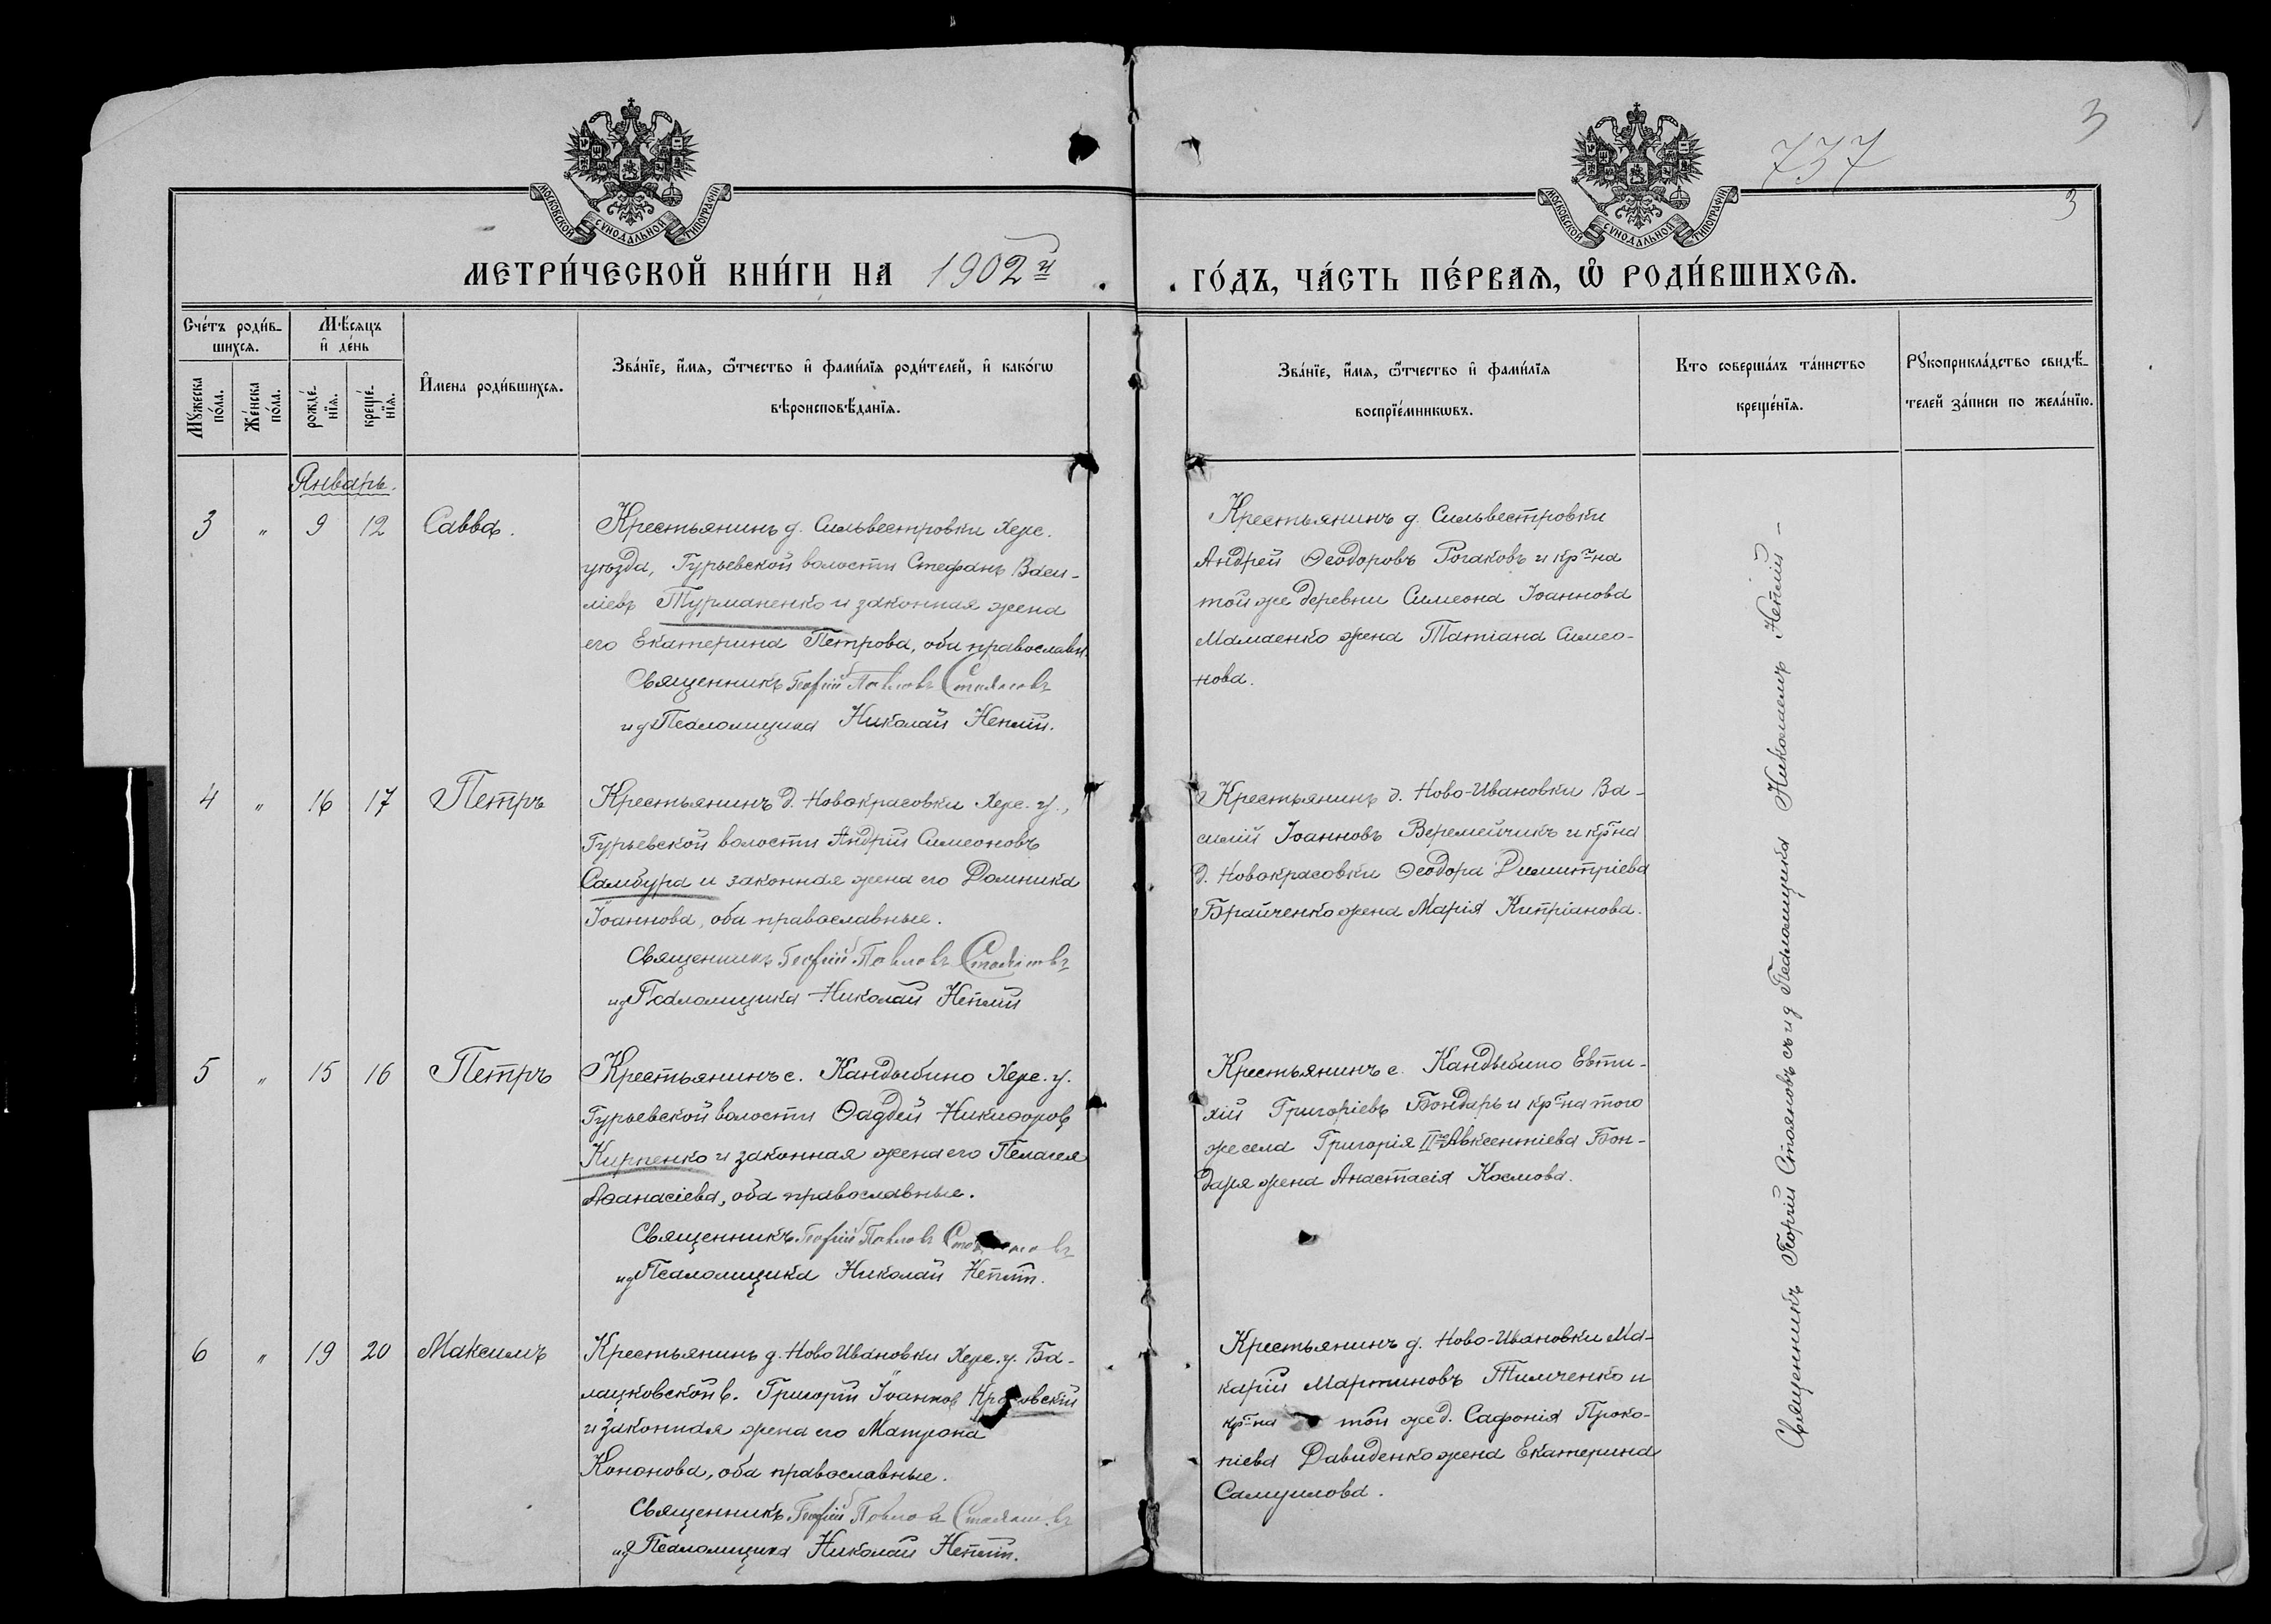 737
3
3
МОСКОВСКОЙ СѴНОДАЛЬНОЙ ТИПОГРАФІИ
МОСКОВСКОЙ СѴНОДАЛЬНОЙ ТИПОГРАФІИ
МЕТРИ́ЧЕСКОЙ КНИ́ГИ НА 1902й ГО́ДЪ, ЧА́СТЬ ПЕ́РВАЯ, Ѡ҆ РОДИ́ВШИХСЯ.
Сче́тъ роди́в-
шихся.
Мꙋжеска по́ла.
Же́нска по́ла.
Мѣ́сяцъ
и҆ де́нь
рожде́-
нїя.
креще́-
нїя.
И҆мена роди́вшихся.
Зва́нїе, и҆́мя, ѻ҆́тчество и҆ фами́лїя роди́телей, и҆ како́гѡ
вѣроисповѣ́данїя.
Зва́нїе, и҆́мя, ѻ҆́тчество и҆ фами́лїя
воспрїе́мникѡвъ.
Кто соверша́лъ та́инство
креще́нїя.
Рꙋкоприкла́дство свидѣ́-
телей за́писи по жела́нїю.
Январь.
3 " 9 12 Савва.
Крестьянинъ д. Сильвестровки Херс.
уѣзда, Гурьевской волости Стефанъ Васи-
ліевъ Турманенко и законная жена
его Екатерина Петрова, оба православн.
Священникъ Георгій Павловъ Стояновъ
и д Псаломщика Николай Неплій.
Крестьянинъ д. Сильвестровки
Андрей Ѳеодоровъ Рогаковъ и кр-на
той же деревни Симеона Іоаннова
Мамаенко жена Татіана Симео-
нова.
4 " 16 17 Петръ
Крестьянинъ д. Новокрасовки Херс. у.,
Гурьевской волости Андрій Симеоновъ
Самбура и законная жена его Домника
Іоаннова, оба православные.
Священникъ Георгій Павловъ Стояновъ
и д Псаломщика Николай Неплій
Крестьянинъ д. Ново-Ивановки Ва-
силій Іоанновъ Веремейчикъ и кр-на
д. Новокрасовки Ѳеодора Димитріева
Брайченко жена Марія Кипріанова.
5 " 15 16 Петръ
Крестьянинъ с. Кандыбино Херс. у.
Гурьевской волости Ѳаддей Никифоров
Кирпенко и законная жена его Пелагея
Аѳанасіева, оба православные.
Священникъ Георгій Павловъ Стояновъ
и д Псаломщика Николай Неплій.
Крестьянинъ с. Кандыбино Евти-
хій Григоріевъ Бондарь и кр-на того
же села Григорія II Авксентіева Бон-
даря жена Анастасія Космова.
6 " 19 20 Максимъ
Крестьянинъ д. Ново Ивановки Херс. у. Ба-
лацковской в. Григорій Іоаннов
и законная жена его Матрона
Кононова, оба православные.
Священникъ Георгій Павловъ Стояновъ
и д Псаломщика Николай Неплій.
Крестьянинъ д. Ново-Ивановки Ма-
карій Мартиновъ Тимченко и
кр-на той же д. Сафонія Проко-
піева Давиденко жена Екатерина
Самуилова.
Священникъ Георгій Стояновъ съ и д Псаломщика Николаемъ Непліий